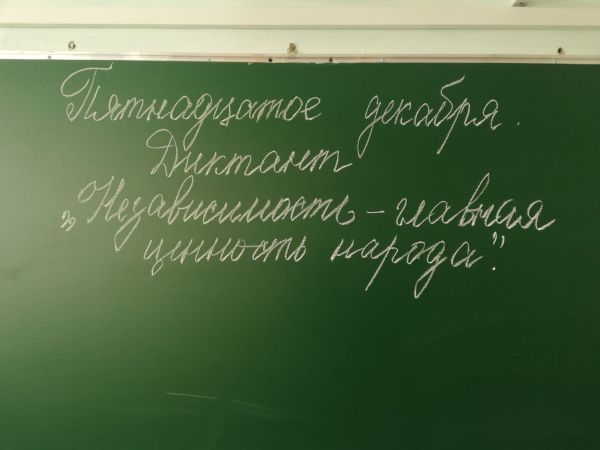 Пятнадцатое декабря.
Диктант
„Независимость – главная
ценность народа”.